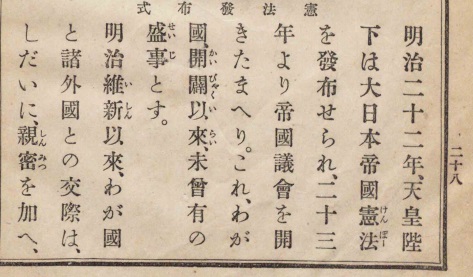 憲法發布式
明治二十二年、天皇陛
下は大日本帝國憲法
を發布せられ、二十三
年より帝國議會を開
きたまへり。これ、わが
國、開闢以來、未曾有の
盛事とす。
明治維新以來、わが國
と諸外國との交際は、
しだいに、親密を加へ、
二十八